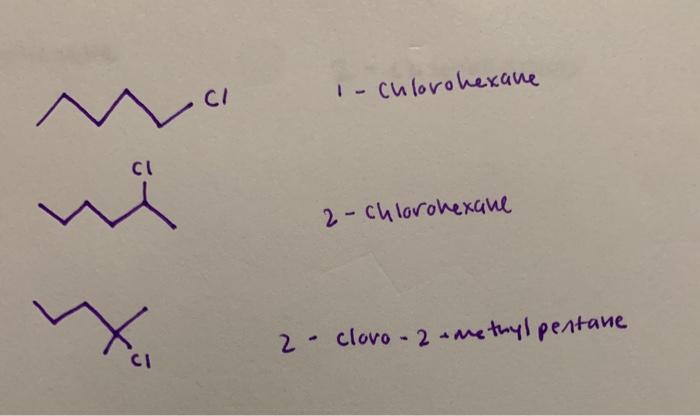 Cl 1 - chlorohexane
Cl
2 - chlorohexane
2 - cloro - 2 - methyl pentane
Cl